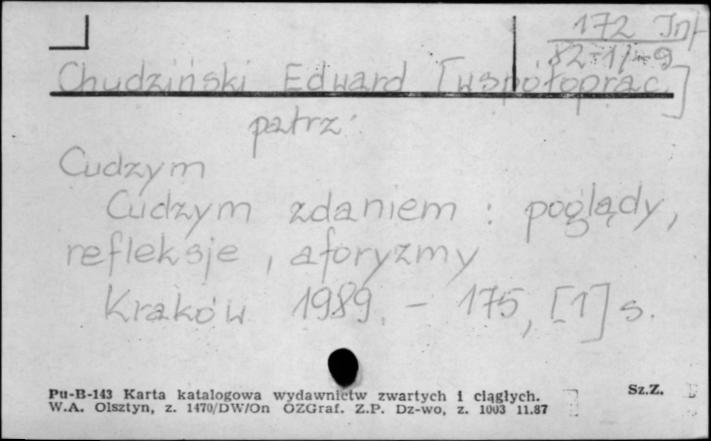 172 Inf
82-1/-9
Chudziński Edward [współoprac]
patrz:
Cudzym
Cudzym zdaniem : poglądy,
refleksje, aforyzmy
Kraków 1989. - 175, [1] s.
Pu-B-143 Karta katalogowa wydawnictw zwartych i ciągłych. Sz.Z.
W.A. Olsztyn, z. 1470/DW/On OZGraf. Z.P. Dz-wo, z. 1003 11.87